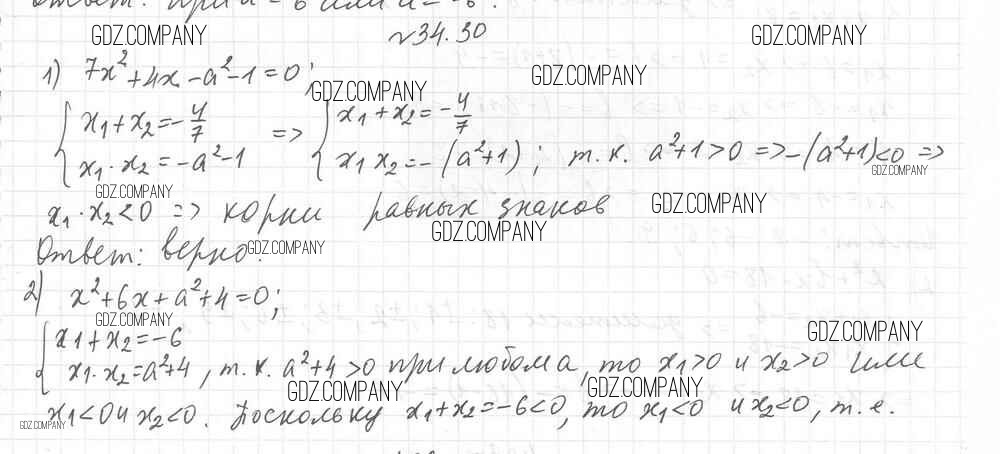 Ответ: при а = 6 или а = -6.
GDZ.COMPANY №34.30 GDZ.COMPANY
1) 7x² + 4x - a² - 1 = 0; GDZ.COMPANY
GDZ.COMPANY
{ x₁ + x₂ = -4/7 => { x₁ + x₂ = -4/7
x₁ · x₂ = -a² - 1 x₁ x₂ = -(a²+1); т.к. a²+1 > 0 => -(a²+1) < 0 =>
GDZ.COMPANY GDZ.COMPANY
x₁ · x₂ < 0 => корни равных знаков GDZ.COMPANY
GDZ.COMPANY
Ответ: верно. GDZ.COMPANY
2) x² + 6x + a² + 4 = 0;
GDZ.COMPANY GDZ.COMPANY
{ x₁ + x₂ = -6
x₁ · x₂ = a² + 4, т.к. a² + 4 > 0 при любом а, то x₁ > 0 и x₂ > 0 или
GDZ.COMPANY GDZ.COMPANY
x₁ < 0 и x₂ < 0. Поскольку x₁ + x₂ = -6 < 0, то x₁ < 0 и x₂ < 0, т.е.
GDZ.COMPANY